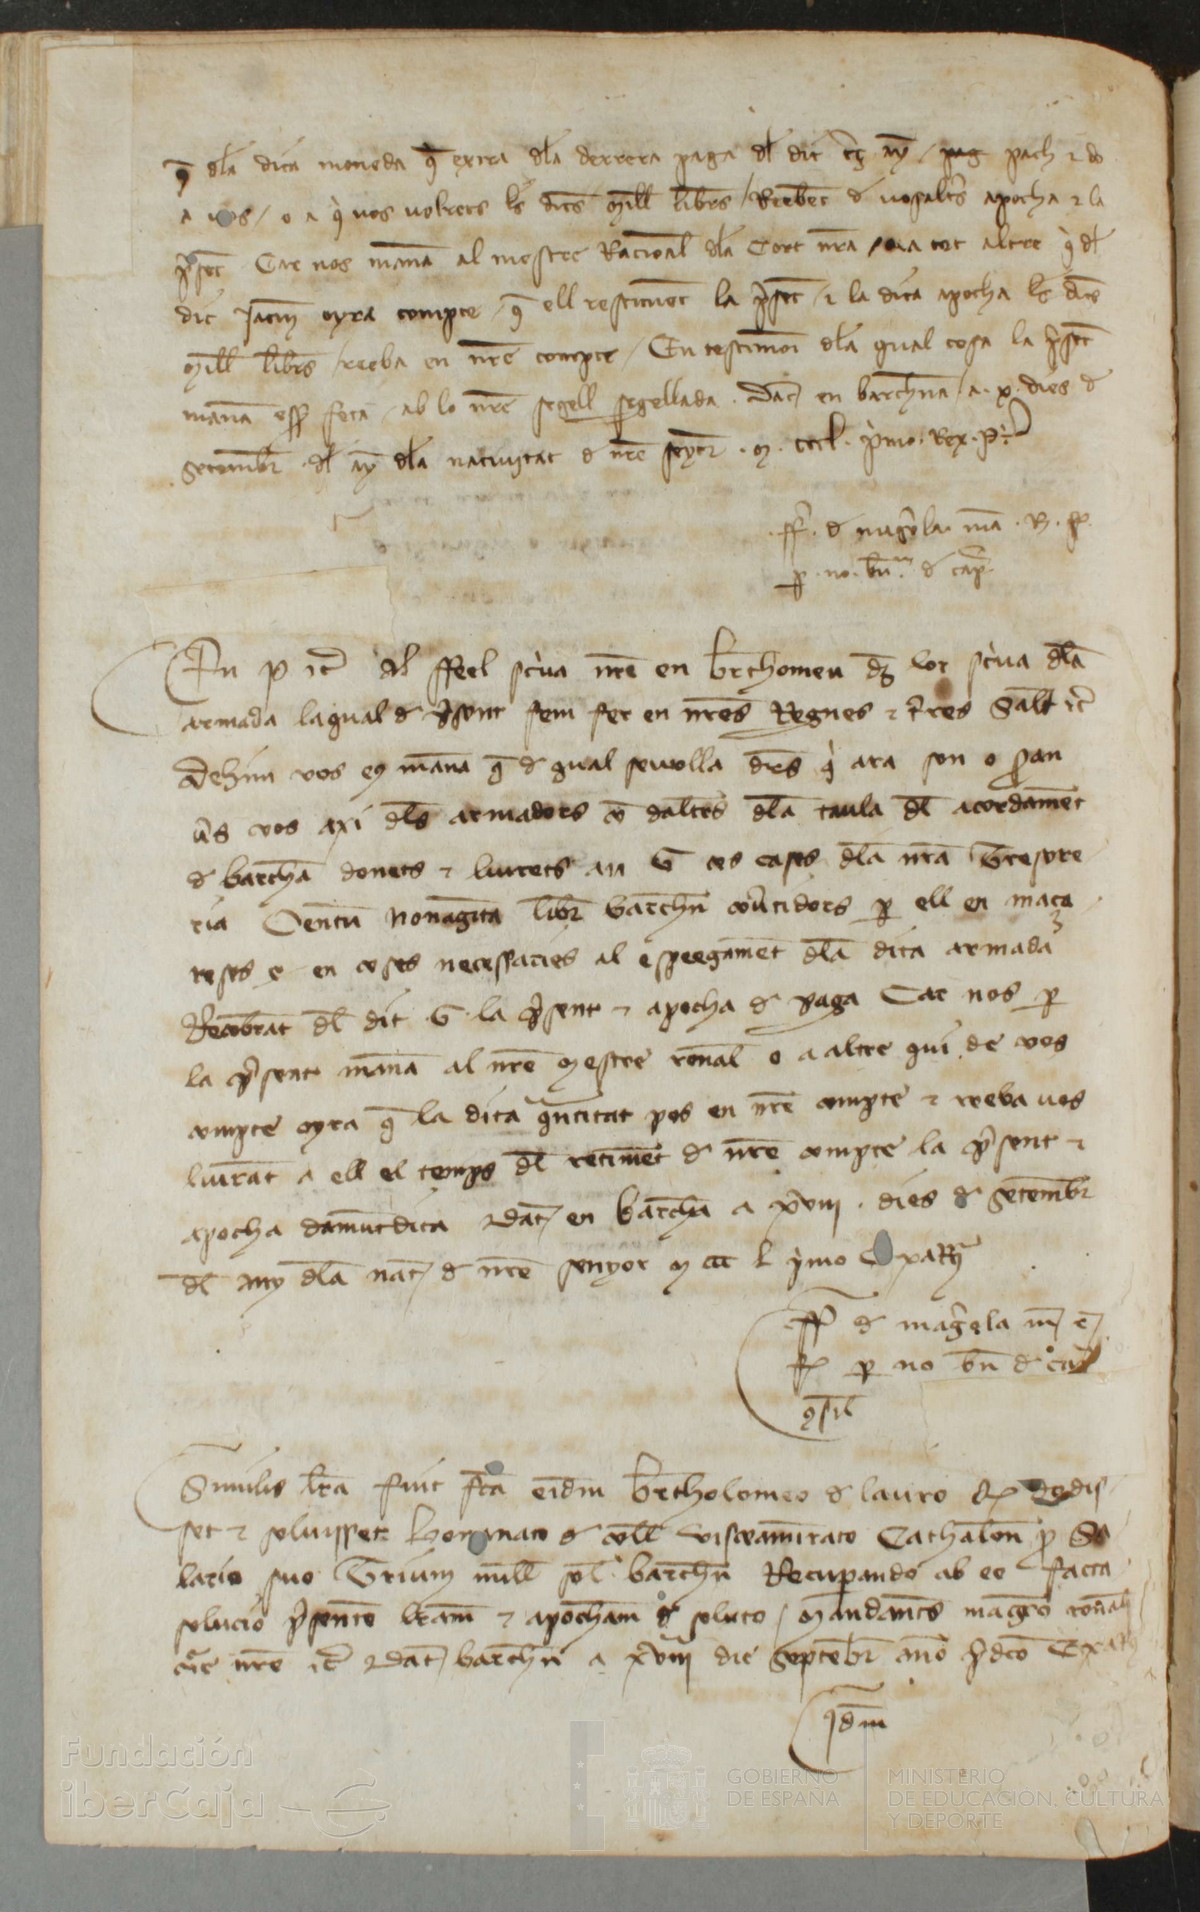 q̄ dl̄a dita moneda q̄ exira dl̄a derrera paga dl̄ dit pach ⁊ do
a vos / o a q̇ vos volrets ls̄ dits mill libr̄s / Reebēt d̄ vosaltr̄s apocha ⁊ la
p̄sēt Car nos manā al mestre Racional dl̄a Cort nr̄a / o a tot altre q̇ dl̄
dit oyra compte / q̄ ell restituēt la p̄sēt / ⁊ la dita apocha ls̄ dits
mill libr̄s / reeba en nr̄e compte / En testimoni dl̄a qual cosa la p̄sēt
manā fetā / ab lo nr̄e segell segellada . Dat̄ en barchn̄a / a . x . dies d̄
Setembr̄ . dl̄ ay̅ dl̄a nativitat d̄ nr̄e seyor̄ . M . cccl . ṗmo . Rex . P .
ff̄ . d̄ magr̄ola . mā .
p̱ . no . bn̄ . d̄ cap̄ .
En P ⁊c̄ Al ffeel sċva nr̄e en br̄thomeu dz̄ lor sċva dl̄a
armada laqual d̄ p̄sent fem fer en nr̄es Regnes ⁊ t̄res Sāl̄t ⁊c̄
Dehim vos e manā q̄ d̄ qual sevolla dr̄s q̇ ara son o s̄an
vs̄ vos axi dl̄s armadors co daltr̄s dl̄a taula dl̄ acordamēt
d̄ barchā donets ⁊ liurets an G ces cases dl̄a nr̄a Tresore
ria Centū nonagīta libr̄ barchn̄ cōutidors p̱ ell en
e en coses necessaries al espeegamēt dl̄a dita armada
Recobrāt dl̄ dit G la p̄sent ⁊ apocha d̄ paga Car nos p̱
la p̄sent manā al nr̄e Mestre ronāl o a altre qui de vos
compte oyra q̄ la dita qn̄titat pos en nr̄e compte ⁊ reeba vos
liurāt a ell el temps dl̄ retimēt d̄ nr̄e compte la p̄sent ⁊
apocha damūtdita Dat̄ en barchā a xviii . dies d̄ Setembr̄
dl̄ any dl̄a nat̄ d̄ nr̄e senyor M ccc L ṗmo
ff̄ d̄ magr̄ola m̄
p̱ no bn̄ d̄ cap̄
9sil̄
Similis lr̄a fuit fc̄a eīdm br̄tholomeo d̄ lauro dedis
set ⁊ solvisset bonanato d̄ coll̄ viceamirato Cathalon̄ p̱ Sa
lario suo Trium mill̄ sol̄ barchn̄ Recupando ab eo facta
solucio p̄sente lr̄am ⁊ apocham d̄ soluto / Mandan̄ts magr̄o ronāli
cur̄e nr̄e ⁊c̄ Dat̄ barchn̄ a xviii die Septēbr̄ āno p̄dc̄o
Idm̄
Fundación
iberCaja
GOBIERNO
DE ESPAÑA
MINISTERIO
DE EDUCACIÓN, CULTURA
Y DEPORTE